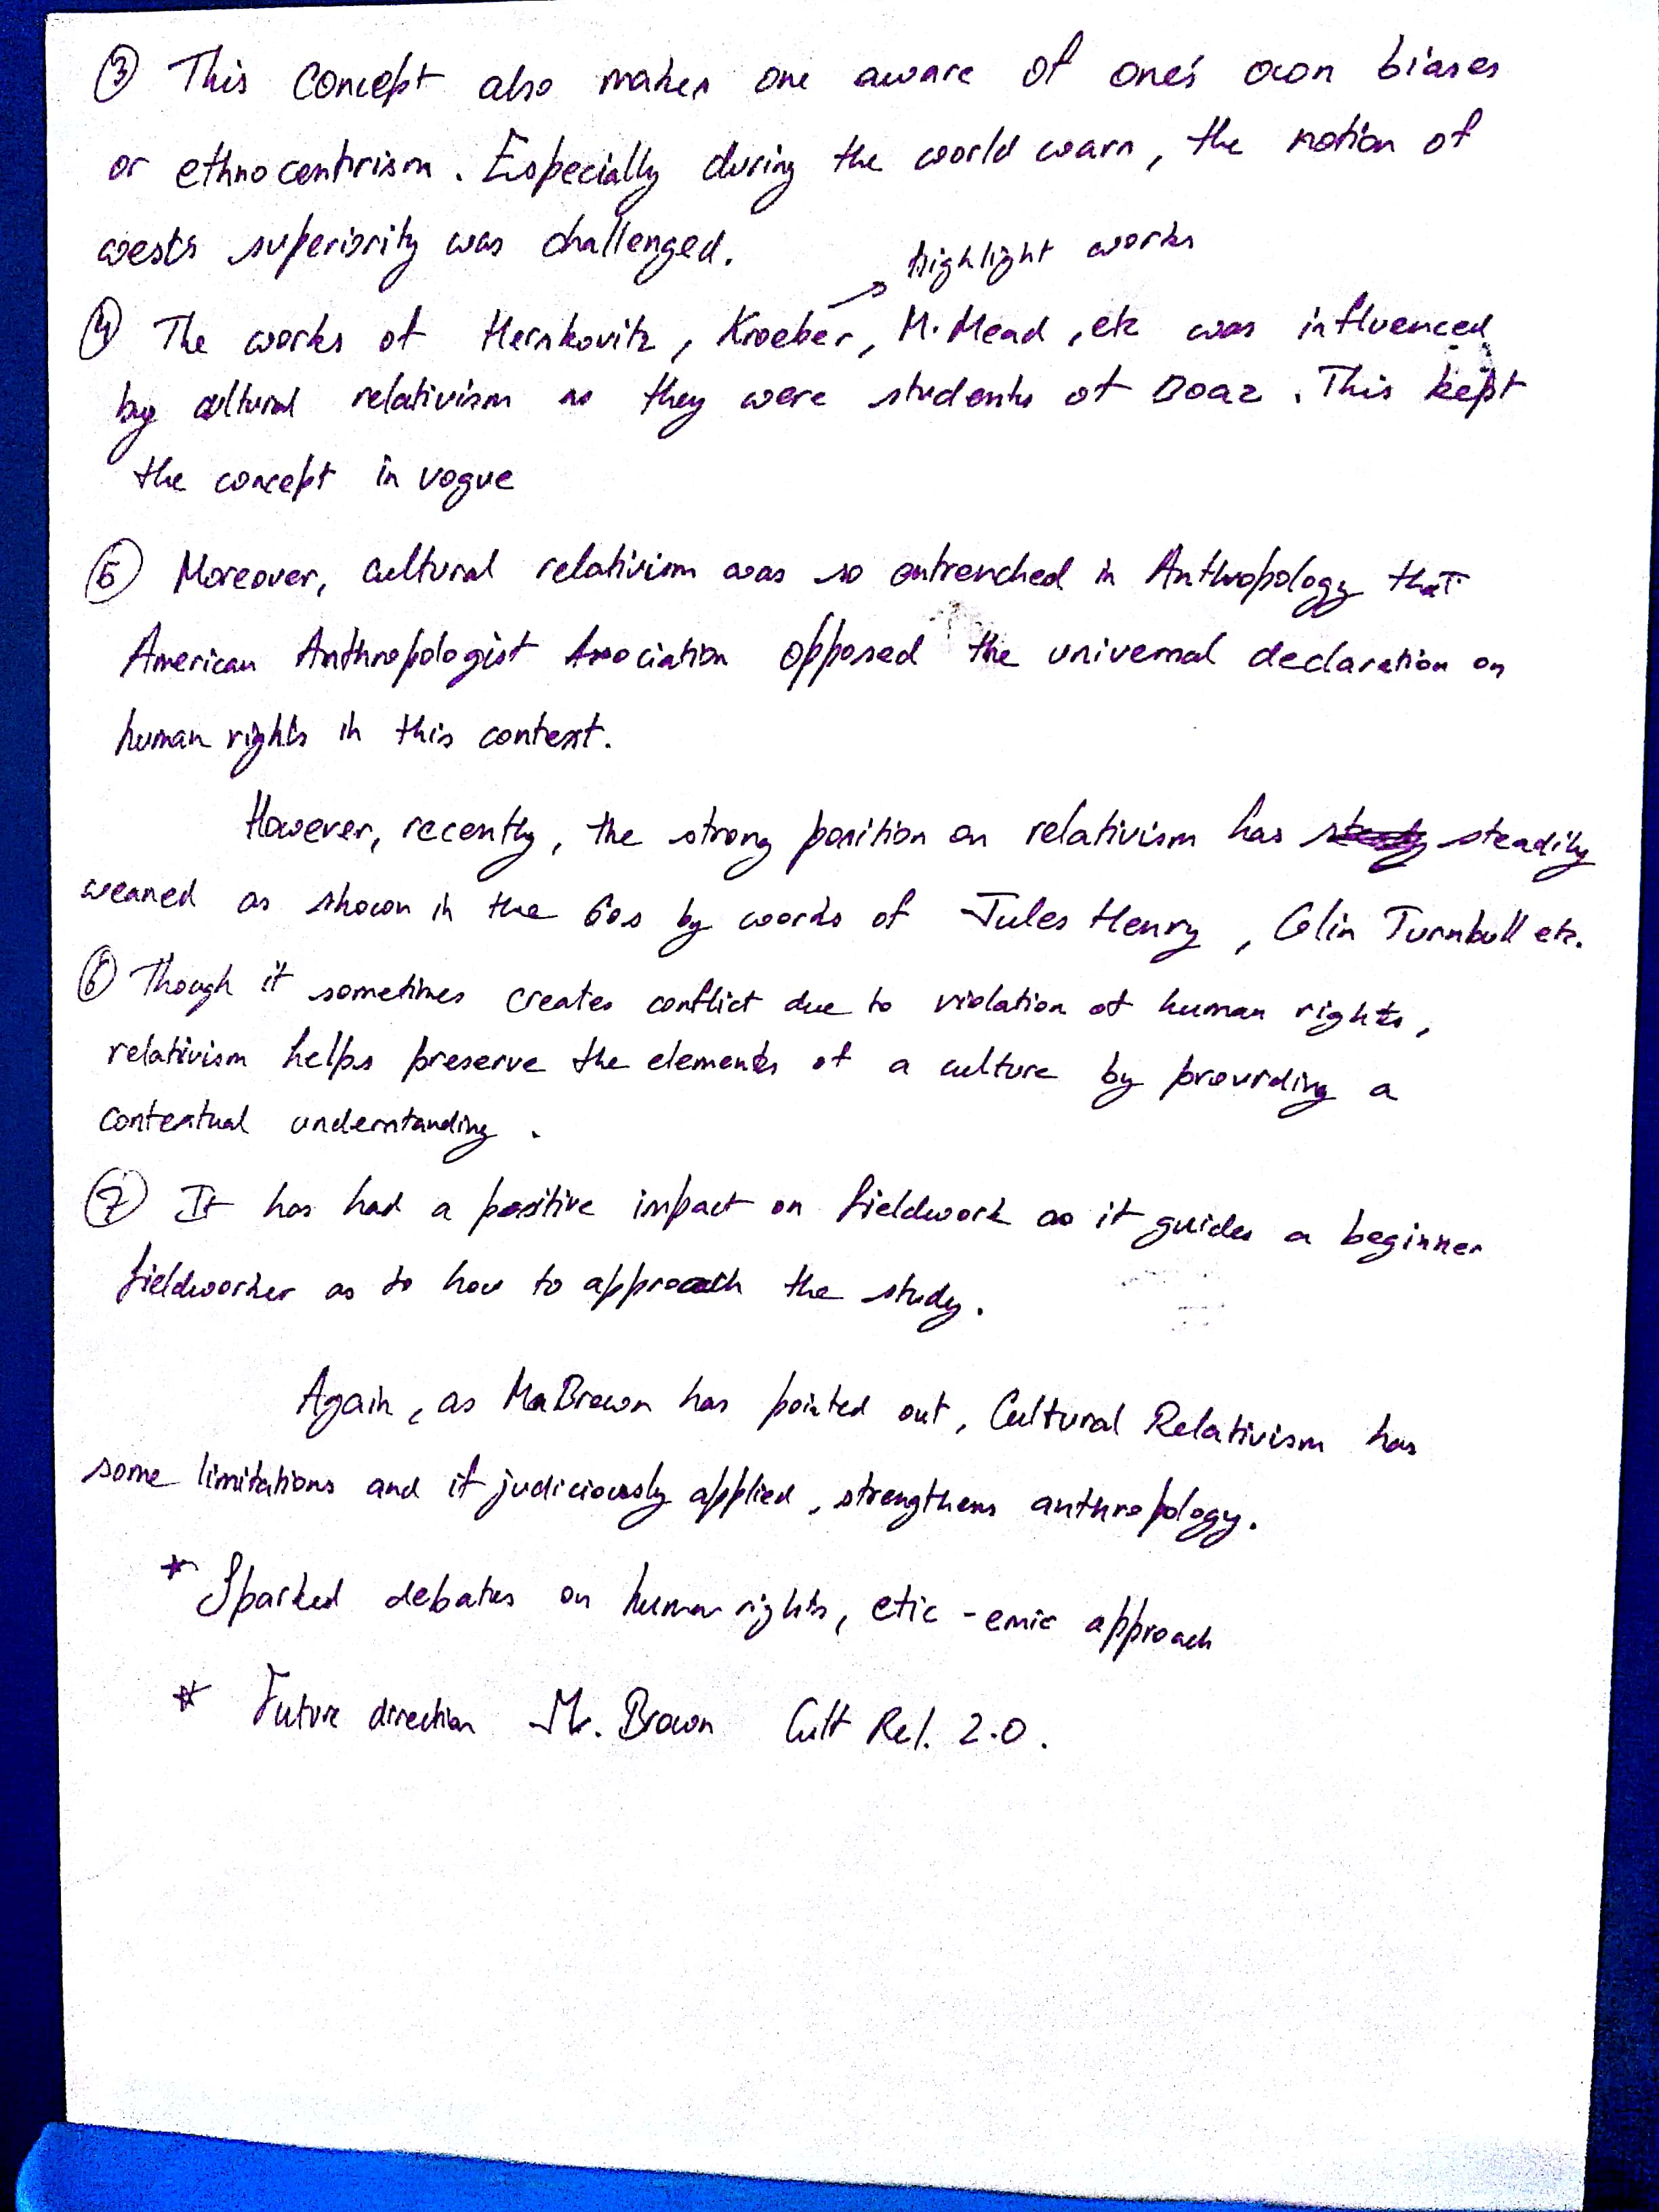 ③ This concept also makes one aware of one's own biases
or ethnocentrism. Especially during the world wars, the notion of
wests superiority was challenged.
→ highlight works
④ The works of Herskovitz, Kroeber, M. Mead, etc was influenced
by cultural relativism as they were students of Boaz. This kept
the concept in vogue
⑤ Moreover, cultural relativism was so entrenched in Anthropology that
American Anthropologist Association opposed the universal declaration on
human rights in this context.
However, recently, the strong position on relativism has steadily
weaned as shown in the 60s by words of Jules Henry, Colin Turnbull etc.
⑥ Though it sometimes creates conflict due to violation of human rights,
relativism helps preserve the elements of a culture by providing a
contextual understanding.
⑦ It has had a positive impact on fieldwork as it guides a beginner
fieldworker as to how to approach the study.
Again, as Brown has pointed out, Cultural Relativism has
some limitations and if judiciously applied, strengthens anthropology.
* Sparked debates on human rights, etic - emic approach
* Future direction Brown Cult Rel. 2.0.